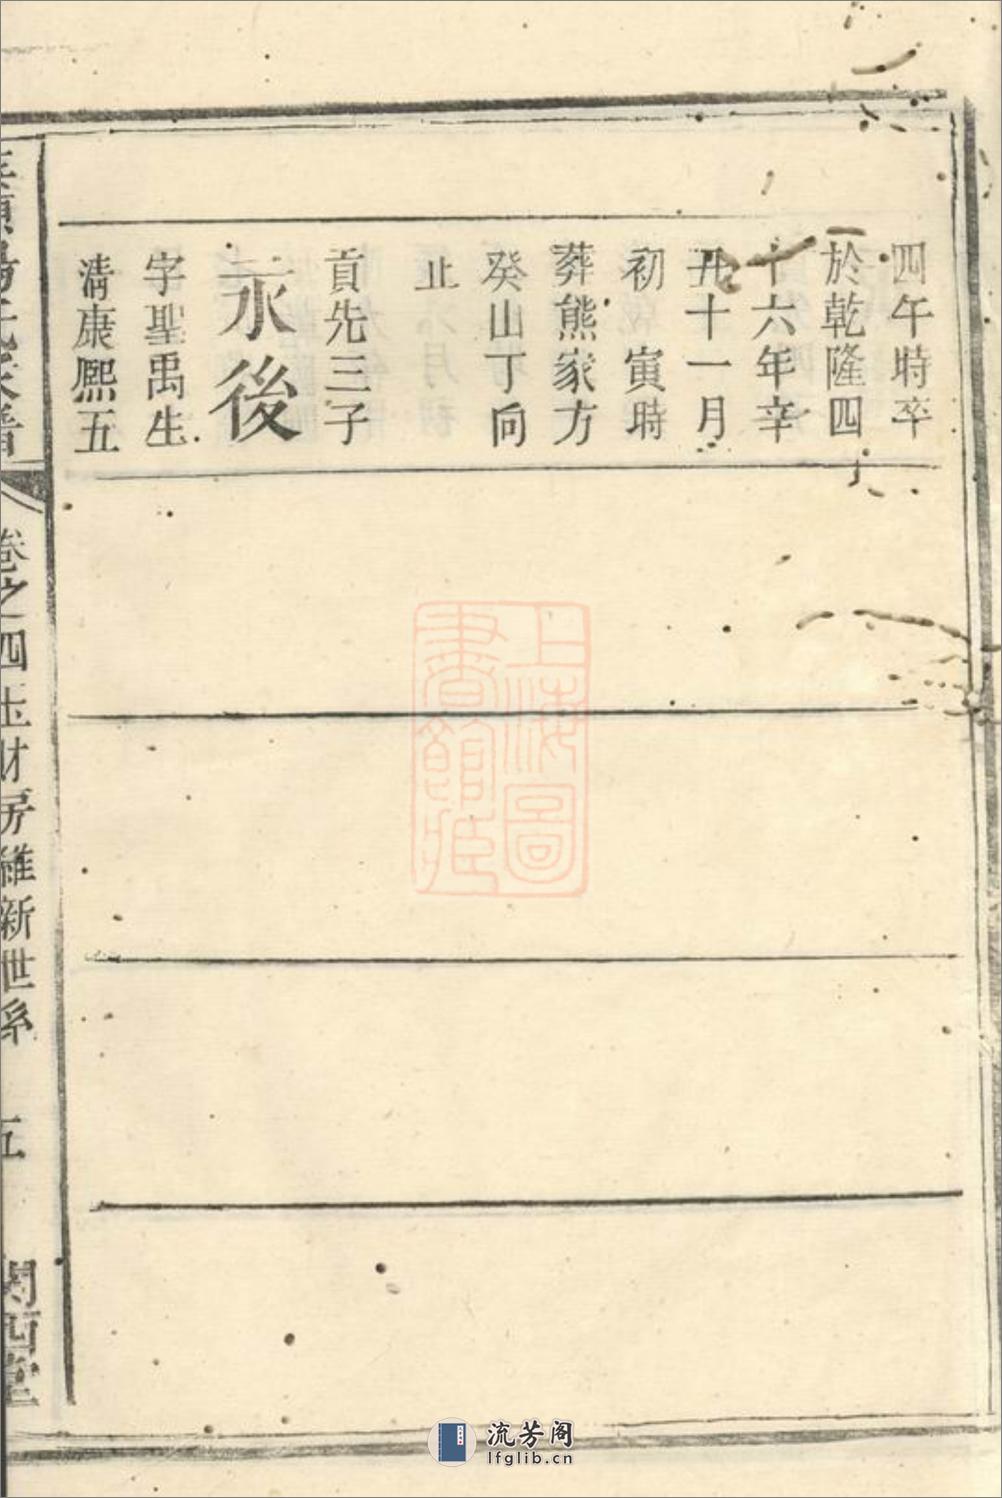 四午時卒
於乾隆四
十六年辛
丑十一月
初 寅時
葬熊家方
癸山丁向
止
貢先三子
永後
字聖禹生
清康熙五
卷之四 玉財房維新世系 五
關西堂
上海圖書館藏
流芳阁
lfglib.cn